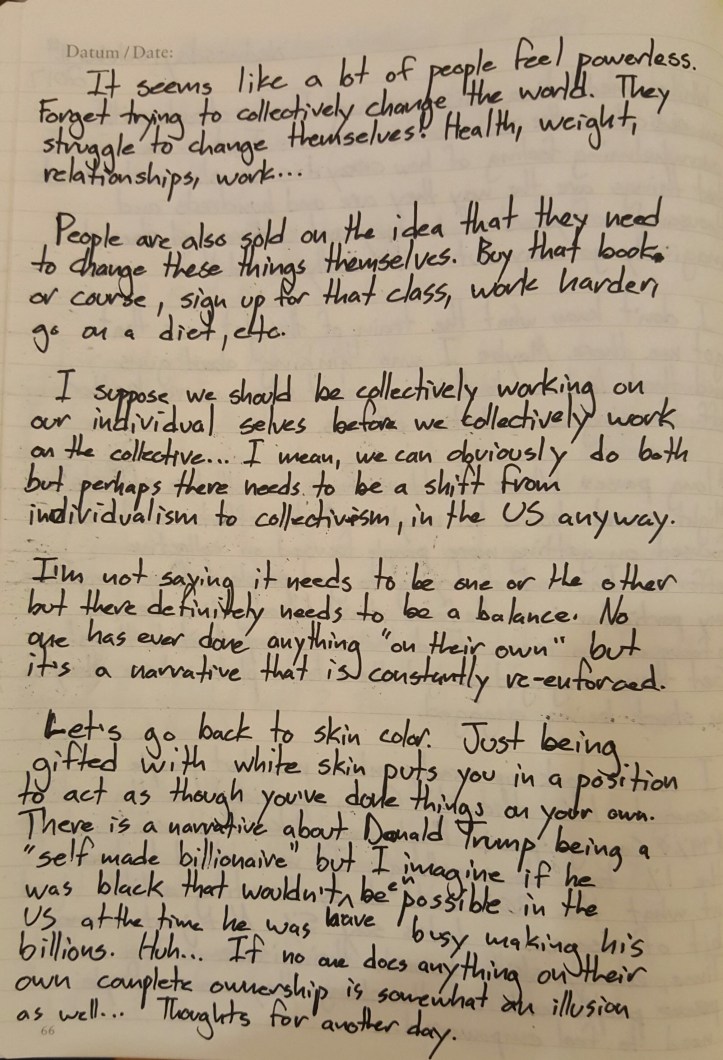 Datum / Date:
It seems like a lot of people feel powerless.
Forget trying to collectively change the world. They
struggle to change themselves! Health, weight,
relationships, work...
People are also sold on the idea that they need
to change these things themselves. Buy that book
or course, sign up for that class, work harder,
go on a diet, etc.
I suppose we should be collectively working on
our individual selves before we collectively work
on the collective... I mean, we can obviously do both
but perhaps there needs to be a shift from
individualism to collectivism, in the US anyway.
I'm not saying it needs to be one or the other
but there definitely needs to be a balance. No
one has ever done anything "on their own" but
it's a narrative that is constantly re-enforced.
Let's go back to skin color. Just being
gifted with white skin puts you in a position
to act as though you've done things on your own.
There is a narrative about Donald Trump being a
"self made billionaire" but I imagine if he
was black that wouldn't been possible in the
US at the time he was have busy making his
billions. Huh... If no one does anything on their
own complete ownership is somewhat an illusion
as well... Thoughts for another day.
66